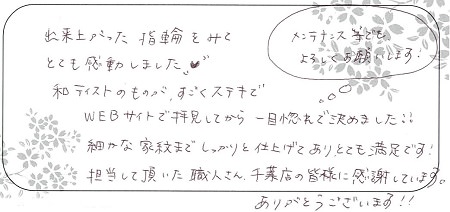 出来上がった 指輪をみて
とても感動しました
和テイストのものが、すごくステキで
WEBサイトで拝見してから 一目惚れで決めました
細かな家紋までしっかりと仕上げてあり、とても満足です!
担当して頂いた職人さん、千葉店の皆様に感謝しています。
ありがとうございます!!
メンテナンス等でも、
よろしくお願いします!